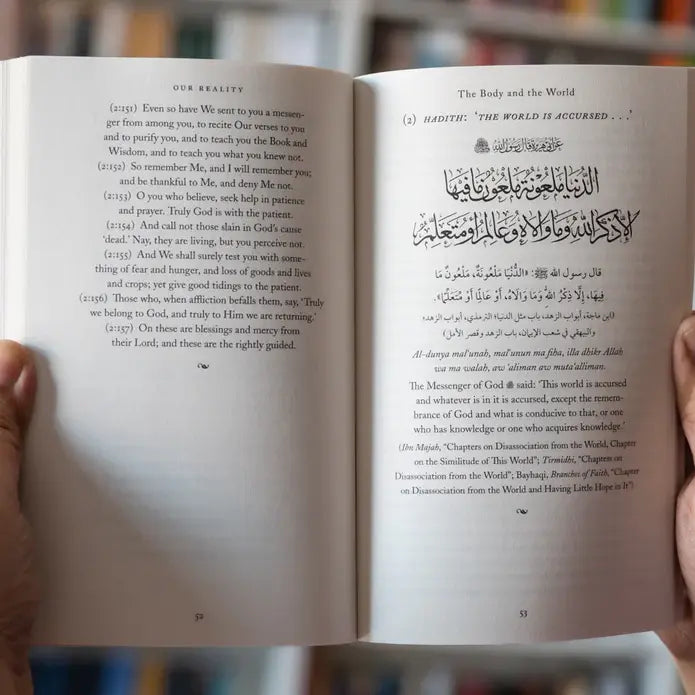 OUR REALITY
(2:151) Even so have We sent to you a messen-
ger from among you, to recite Our verses to you
and to purify you, and to teach you the Book and
Wisdom, and to teach you what you knew not.
(2:152) So remember Me, and I will remember you;
and be thankful to Me, and deny Me not.
(2:153) O you who believe, seek help in patience
and prayer. Truly God is with the patient.
(2:154) And call not those slain in God's cause
'dead.' Nay, they are living, but you perceive not.
(2:155) And We shall surely test you with some-
thing of fear and hunger, and loss of goods and lives
and crops; yet give good tidings to the patient.
(2:156) Those who, when affliction befalls them, say, 'Truly
we belong to God, and truly to Him we are returning.'
(2:157) On these are blessings and mercy from
their Lord; and these are the rightly guided.
52
The Body and the World
(2) HADITH: 'THE WORLD IS ACCURSED . . .'
الدنيا ملعونة ملعون ما فيها
إلا ذكر الله وما والاه وعالم أو متعلم
قال رسول الله ﷺ: «الدُّنْيَا مَلْعُونَةٌ، مَلْعُونٌ مَا
فِيهَا، إِلَّا ذِكْرُ اللهِ وَمَا وَالَاهُ، أَوْ عَالِمًا أَوْ مُتَعَلِّمًا».
(ابن ماجة، أبواب الزهد، باب مثل الدنيا؛ الترمذي، أبواب الزهد؛
والبيهقي في شعب الإيمان، باب الزهد وقصر الأمل)
Al-dunya mal'unah, mal'unun ma fiha, illa dhikr Allah
wa ma walah, aw 'aliman aw muta'alliman.
The Messenger of God ﷺ said: 'This world is accursed
and whatever is in it is accursed, except the remem-
brance of God and what is conducive to that, or one
who has knowledge or one who acquires knowledge.'
(Ibn Majah, "Chapters on Disassociation from the World, Chapter
on the Similitude of This World"; Tirmidhi, "Chapters on
Disassociation from the World"; Bayhaqi, Branches of Faith, "Chapter
on Disassociation from the World and Having Little Hope in It")
53